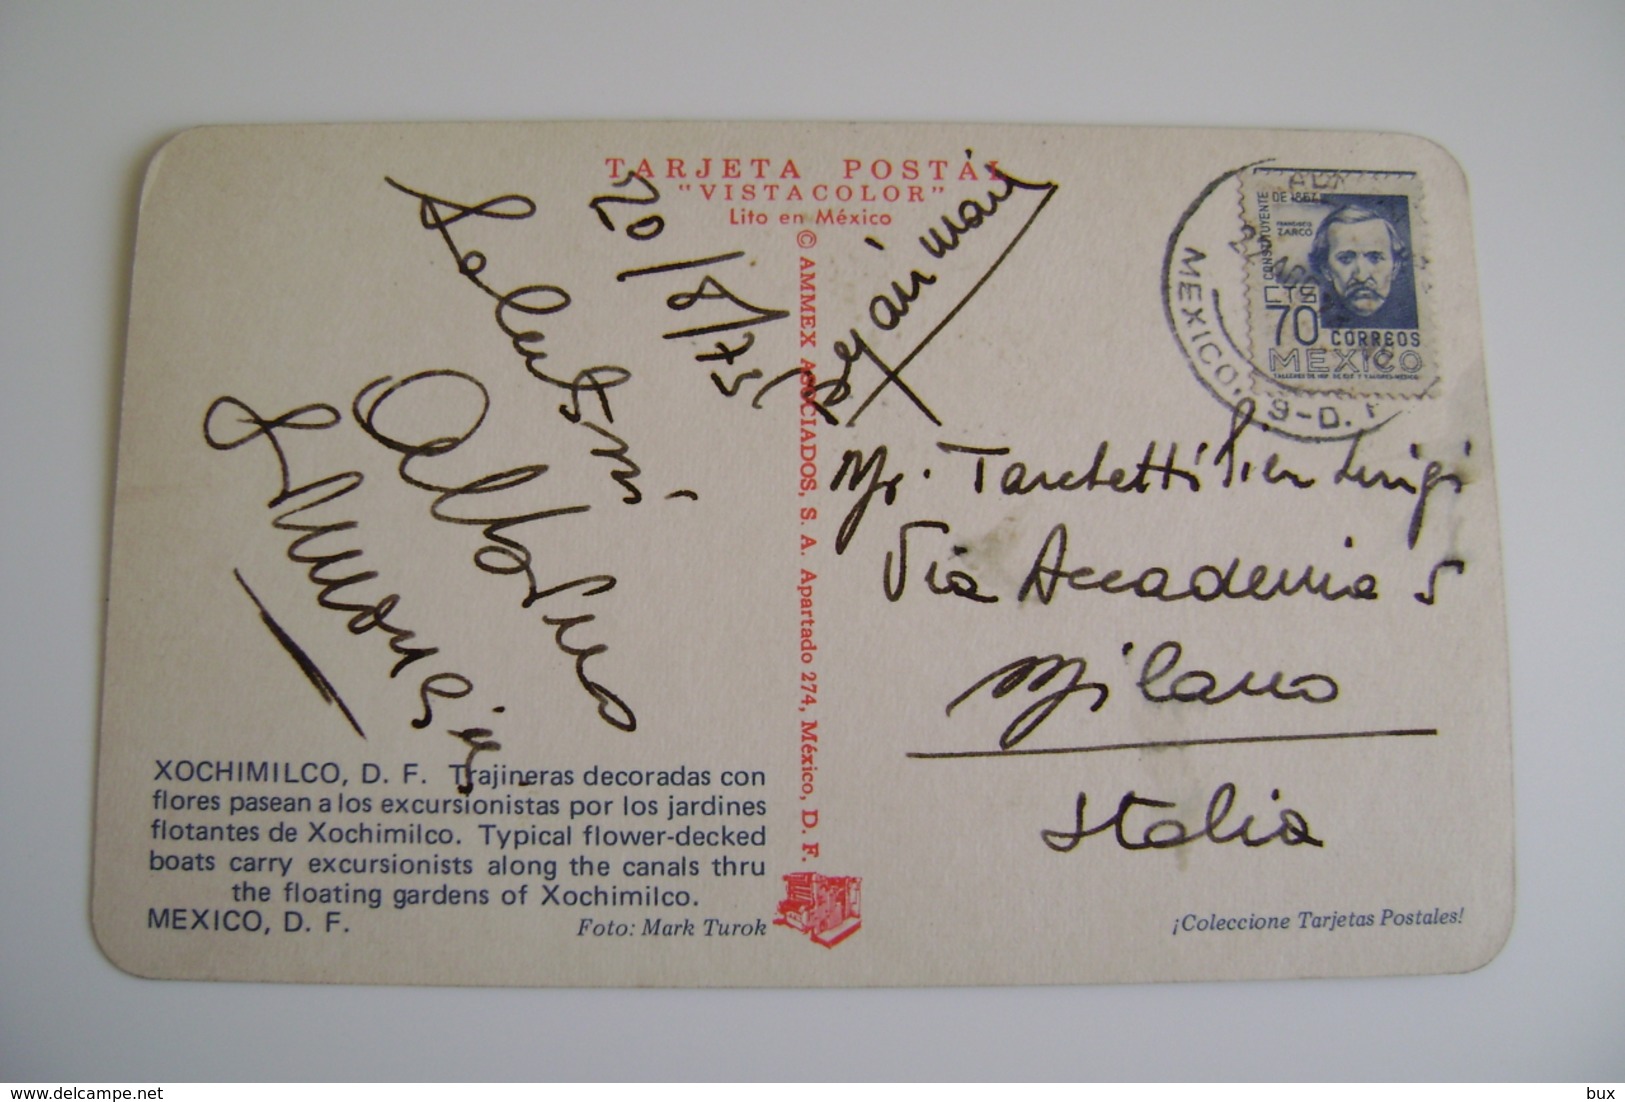 TARJETA POSTAL
"VISTACOLOR"
Lito en México
20/8/75
Saluti
© AMMEX ASOCIADOS, S. A. Apartado 274, México, D. F.
CONSTITUYENTE
DE 1857
FRANCISCO
ZARCO
CTS
70 CORREOS
MEXICO
MEXICO, 9-D. F
Mr. Tarchetti Pier Luigi
Via Accademia 5
Milano
Italia
XOCHIMILCO, D. F. Trajineras decoradas con
flores pasean a los excursionistas por los jardines
flotantes de Xochimilco. Typical flower-decked
boats carry excursionists along the canals thru
the floating gardens of Xochimilco.
MEXICO, D. F.
Foto: Mark Turok
¡Coleccione Tarjetas Postales!
bux